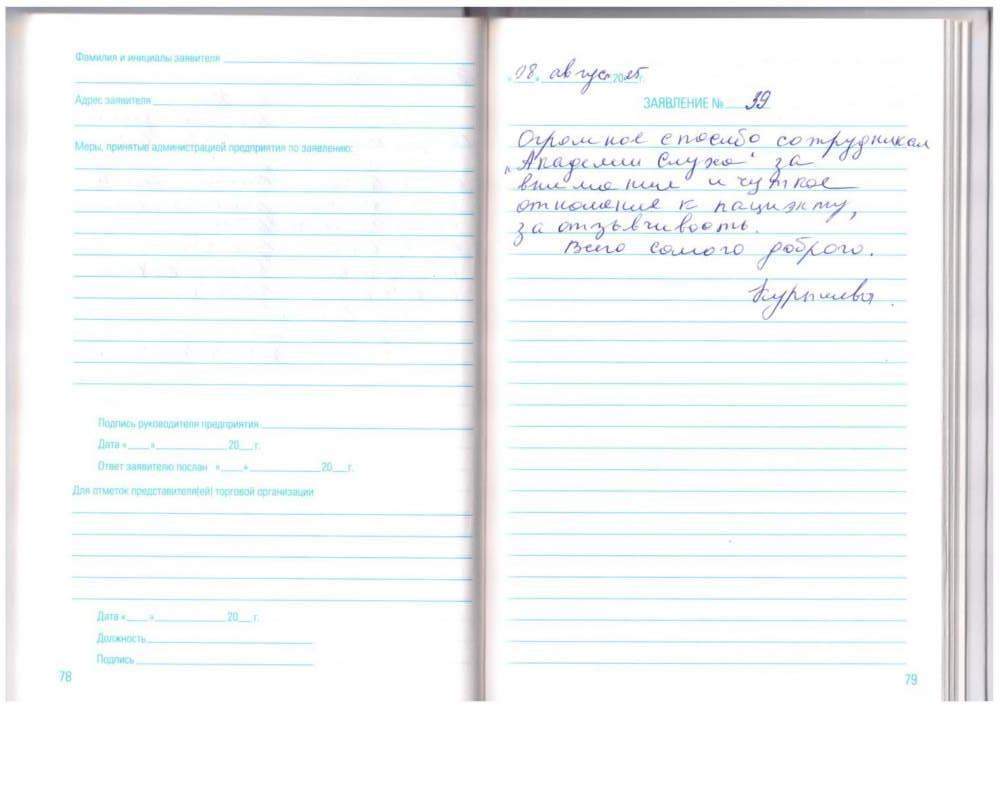 Фамилия и инициалы заявителе
Адрес заявителя
Меры, принятые администрацией предприятия по заявлению:
Подпись руководителя предприятия
Дата «___»____________20___г.
Ответ заявителю послан «___»____________20___г.
Для отметок представителя(ей) торговой организации
Дата «___»____________20___г.
Должность
Подпись
78
"08" август 2015г.
ЗАЯВЛЕНИЕ № 39
Огромное спасибо сотрудникам
"Академии Слуха" за
внимание и чуткое
отношение к пациэнту,
за отзывчивость.
Всего самого доброго.
79